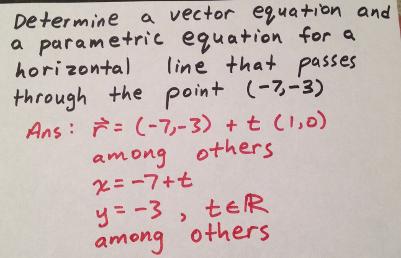 Determine a vector equation and
a parametric equation for a
horizontal line that passes
through the point (-7,-3)
Ans: r⃗ = (-7,-3) + t (1,0)
among others
x = -7+t
y = -3 , t∈ℝ
among others